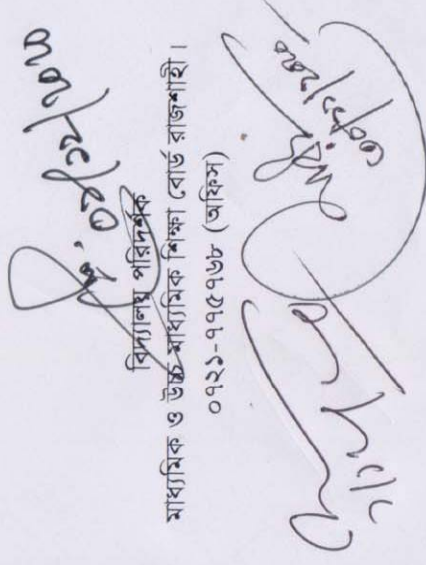 ০৩/১২/২০২০
বিদ্যালয় পরিদর্শক
মাধ্যমিক ও উচ্চ মাধ্যমিক শিক্ষা বোর্ড রাজশাহী।
০৭২১-৭৭৫৭৬৮ (অফিস)